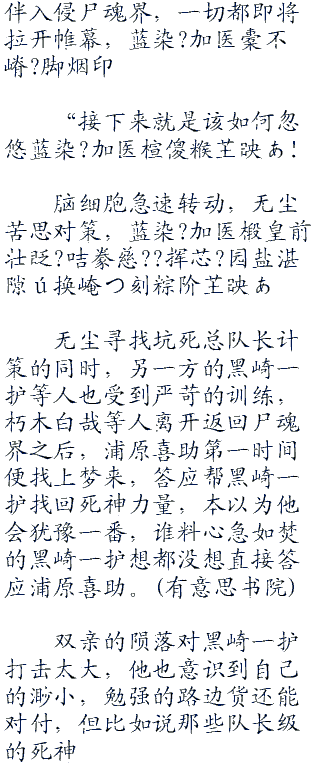 伴入侵尸魂界，一切都即将
拉开帷幕，蓝染?加医橐不
嵴?脚烟印
“接下来就是该如何忽
悠蓝染?加医楦傻糇芏映ぁ!
脑细胞急速转动，无尘
苦思对策，蓝染?加医椴皇前
壮眨?咭豢慈??挥芯?园盐湛
隙ú换崦つ刻粽阶芏映ぁ
无尘寻找坑死总队长计
策的同时，另一方的黑崎一
护等人也受到严苛的训练，
朽木白哉等人离开返回尸魂
界之后，浦原喜助第一时间
便找上梦来，答应帮黑崎一
护找回死神力量，本以为他
会犹豫一番，谁料心急如焚
的黑崎一护想都没想直接答
应浦原喜助。(有意思书院)
双亲的陨落对黑崎一护
打击太大，他也意识到自己
的渺小，勉强的路边货还能
对付，但比如说那些队长级
的死神